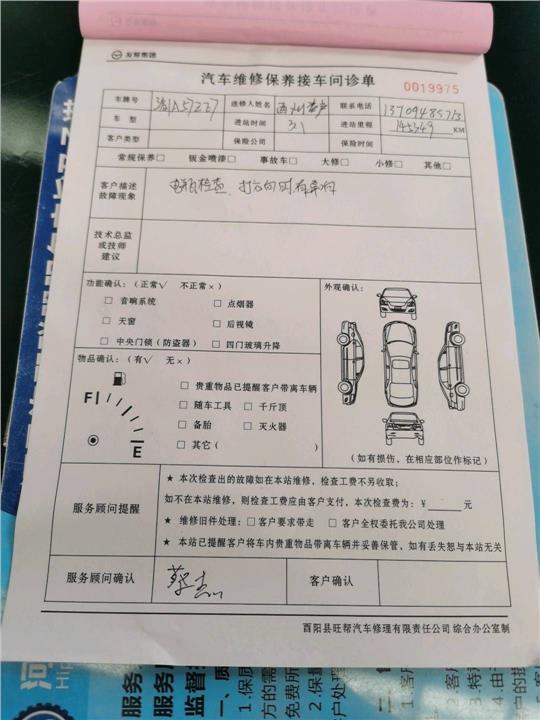 友帮集团
汽车维修保养接车问诊单
0019975
车牌号 渝A57227 送修人姓名 联系电话
车型 进站时间 3.1 进站里程 145349 KM
客户类型 保险公司 保险时间
常规保养□ 钣金喷漆□ 事故车□ 大修□ 小修□ 其他□
客户描述
故障现象
电瓶检查 打方向时有异响
技术总监
或技师
建议
功能确认:(正常√ 不正常×)
□ 音响系统 □ 点烟器
□ 天窗 □ 后视镜
□ 中央门锁(防盗器) □ 四门玻璃升降
外观确认:
(如有损伤,在相应部位作标记)
物品确认:(有√ 无×)
F
E
□ 贵重物品已提醒客户带离车辆
□ 随车工具 □ 千斤顶
□ 备胎 □ 灭火器
□ 其它( )
服务顾问提醒
★ 本次检查出的故障如在本站维修,检查工费不另收取;
如不在本站维修,则检查工费应由客户支付,本次检查费为:¥ 元
★ 维修旧件处理:□ 客户要求带走 □ 客户全权委托我公司处理
★ 本站已提醒客户将车内贵重物品带离车辆并妥善保管,如有丢失恕与本站无关
服务顾问确认 客户确认
酉阳县旺帮汽车修理有限责任公司 综合办公室制